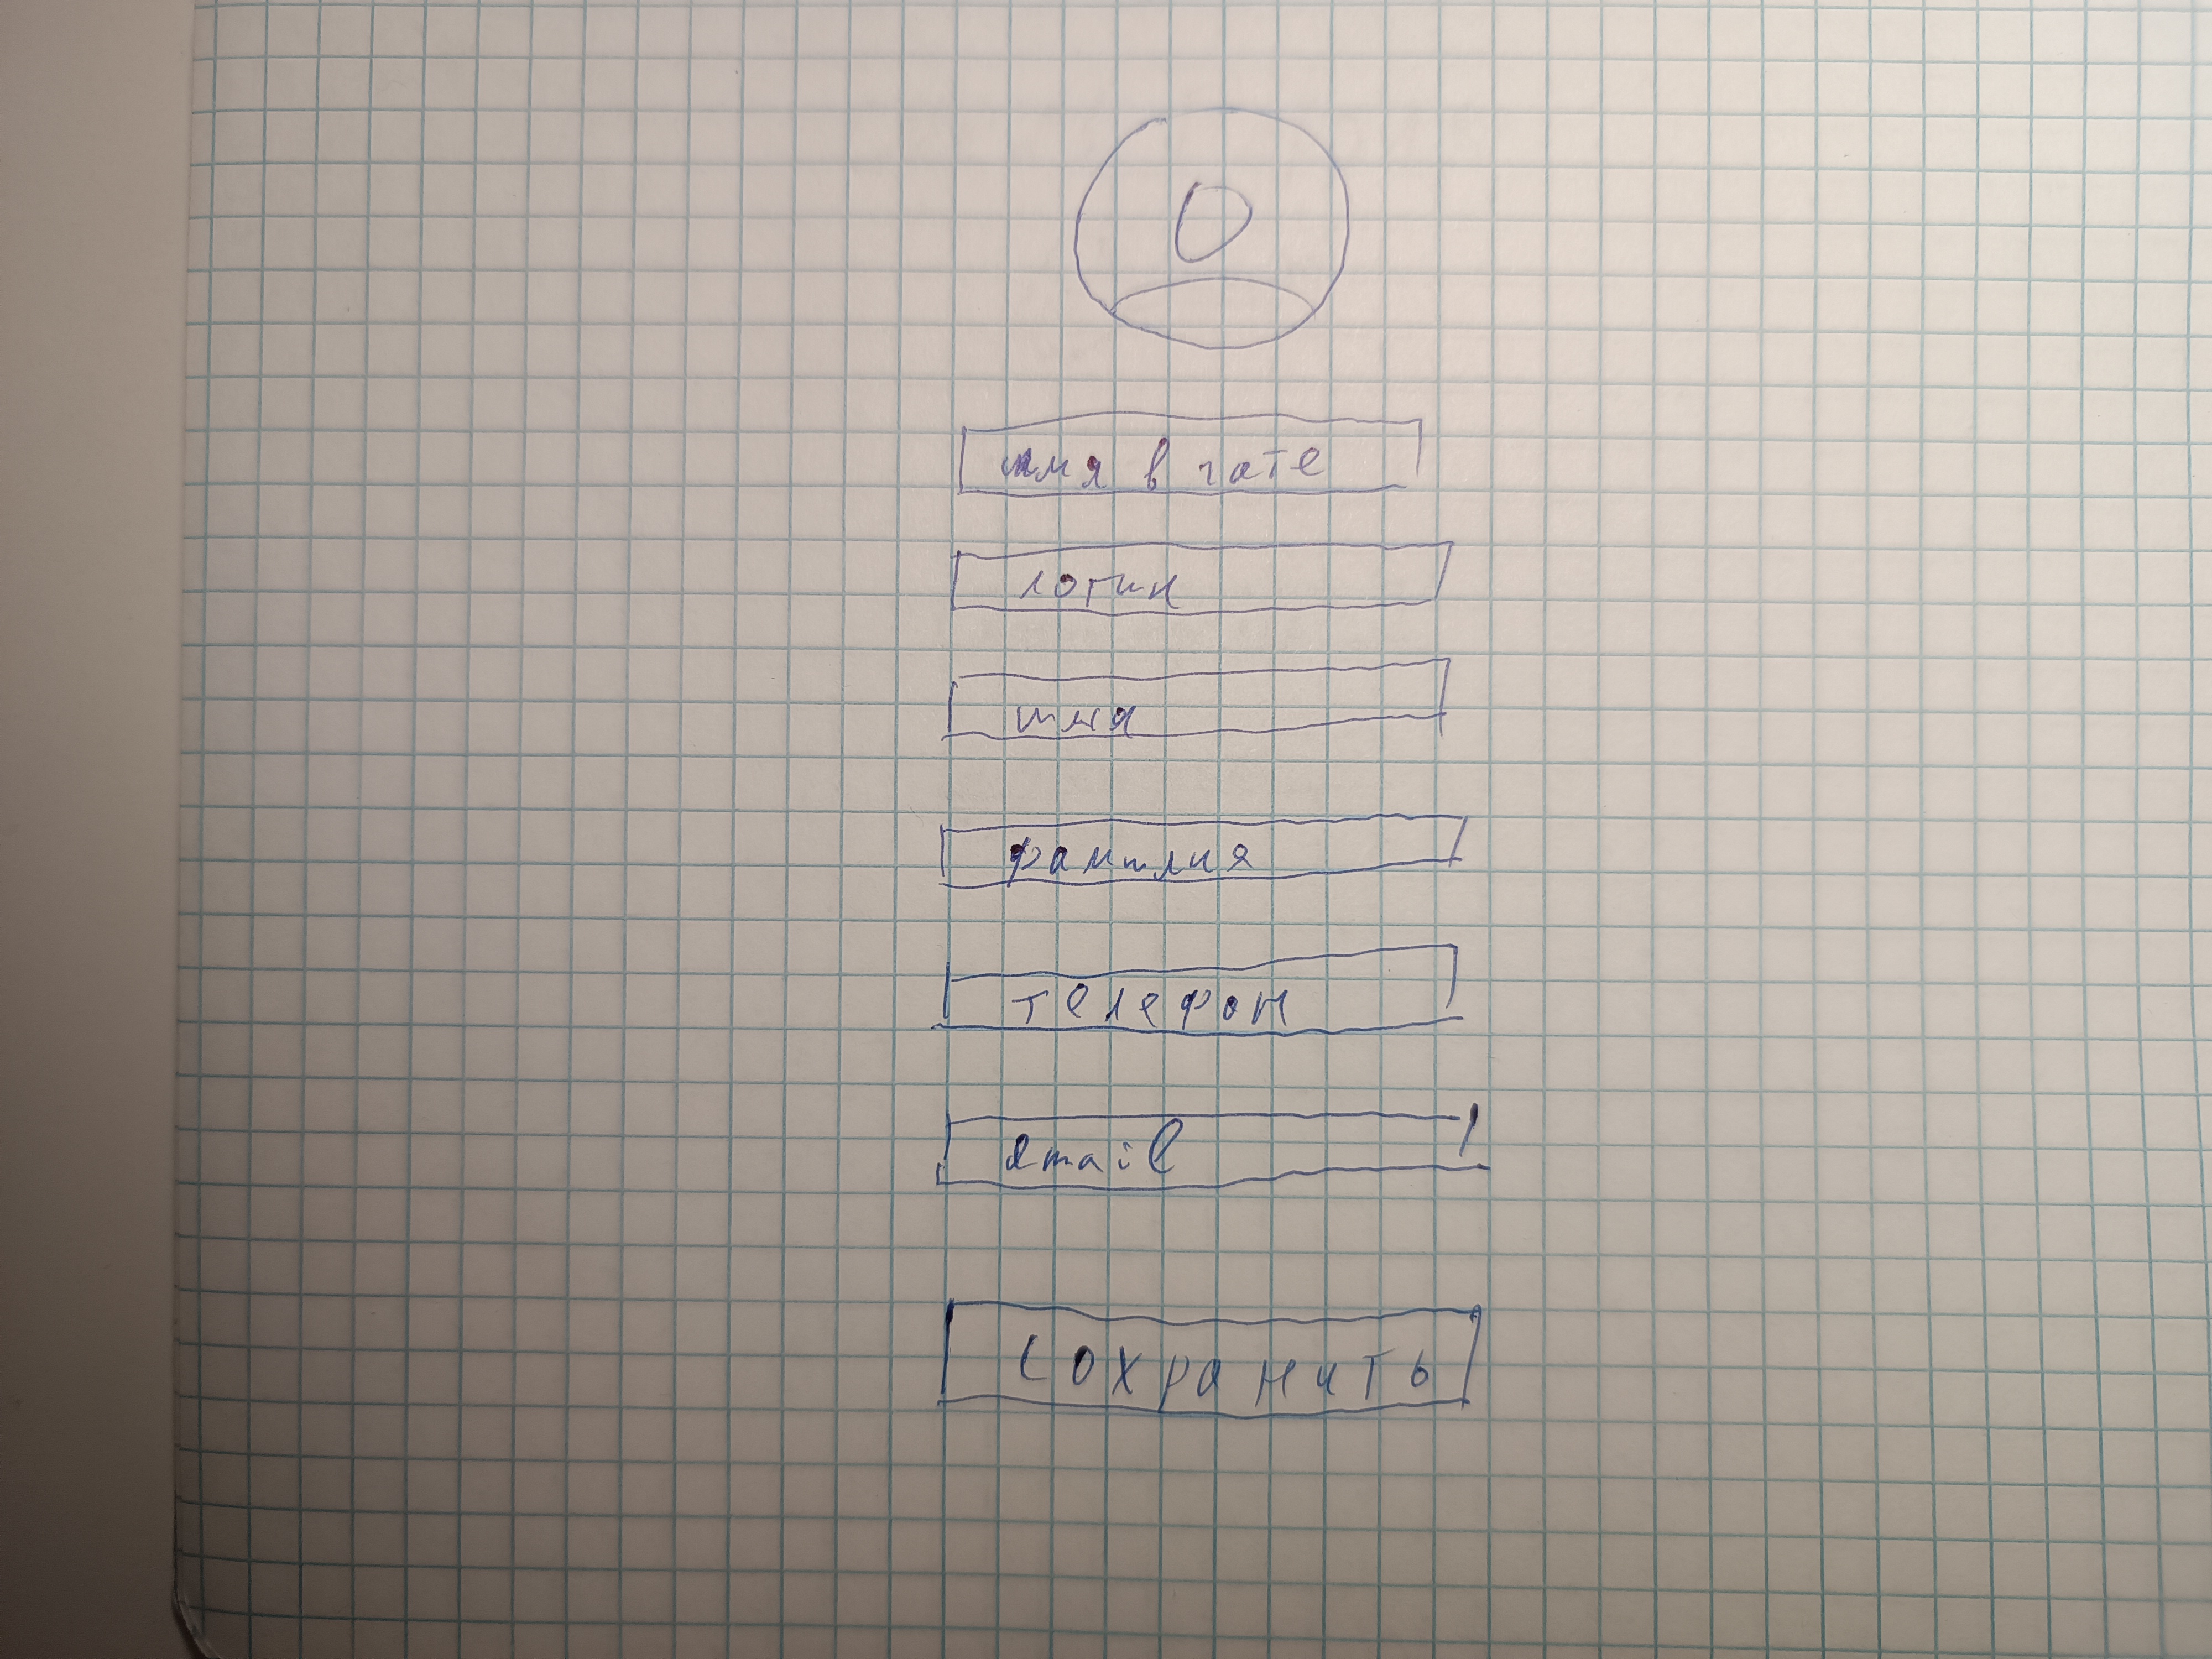 имя в чате
логин
имя
фамилия
телефон
email
сохранить